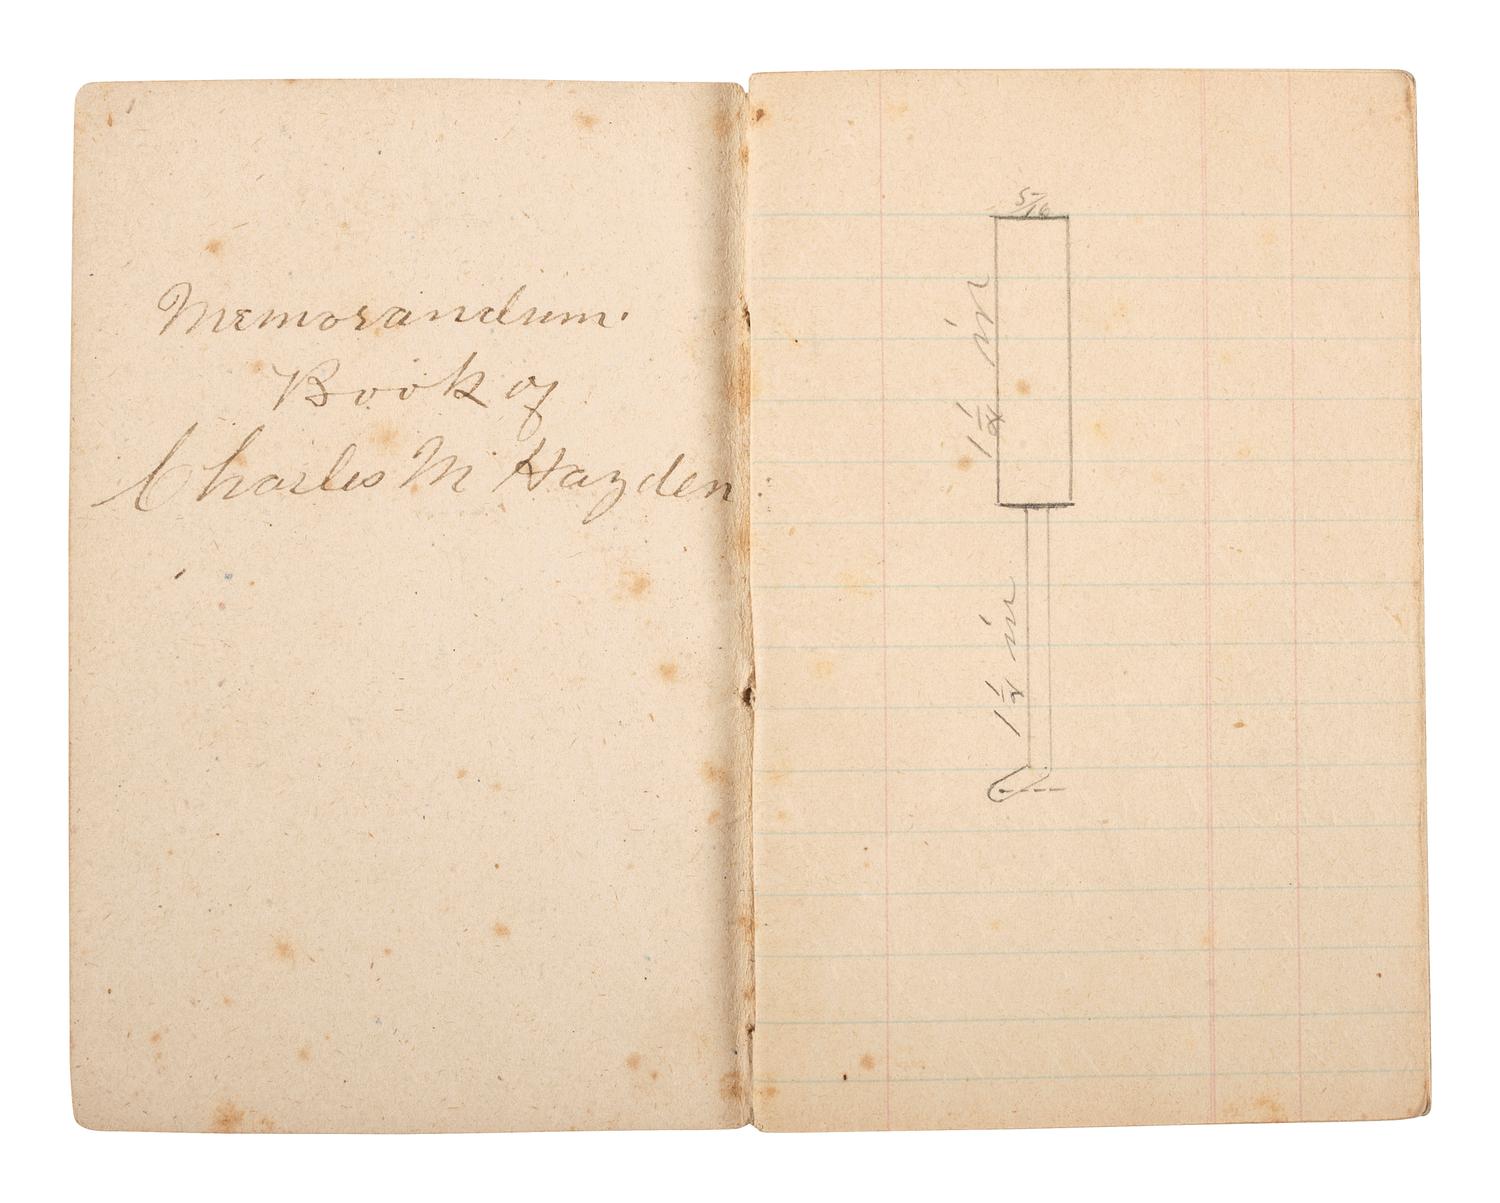 Memorandum.
Book of
Charles M Hayden
5/16
1 1/4 in
1 1/4 in